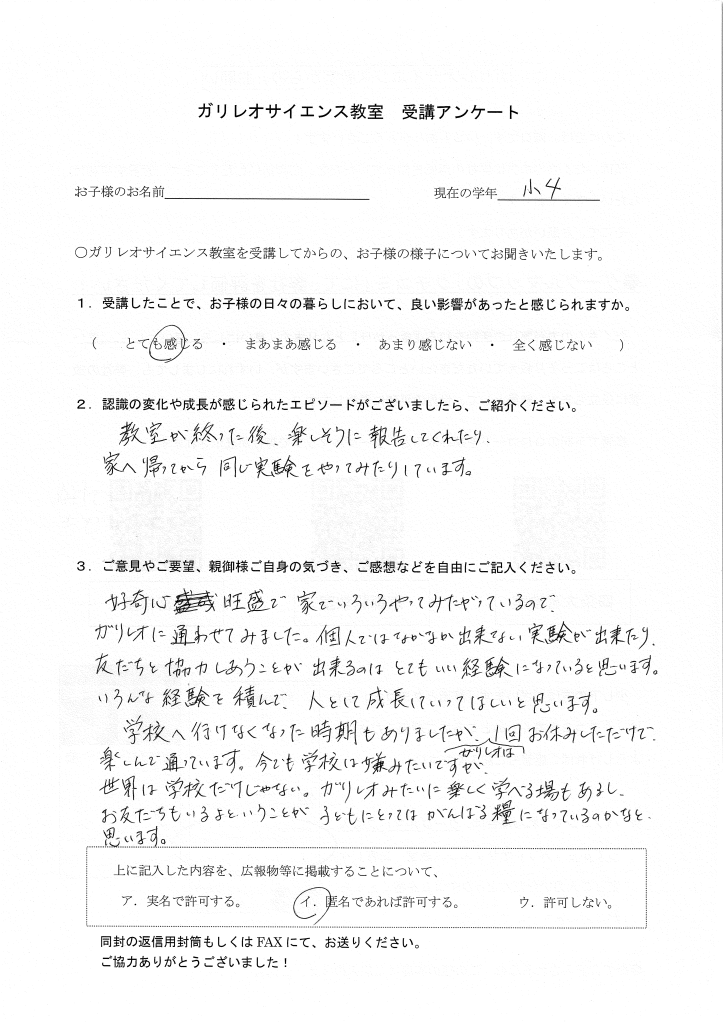 ガリレオサイエンス教室　受講アンケート
お子様のお名前　現在の学年　小4
〇ガリレオサイエンス教室を受講してからの、お子様の様子についてお聞きいたします。
１．受講したことで、お子様の日々の暮らしにおいて、良い影響があったと感じられますか。
（　とても感じる　・　まあまあ感じる　・　あまり感じない　・　全く感じない　）
２．認識の変化や成長が感じられたエピソードがございましたら、ご紹介ください。
教室が終った後、楽しそうに報告してくれたり、
家へ帰ってから同じ実験をやってみたりしています。
３．ご意見やご要望、親御様ご自身の気づき、ご感想などを自由にご記入ください。
好奇心旺盛で家でいろいろやってみたがっているので、
ガリレオに通わせてみました。個人ではなかなか出来ない実験が出来たり、
友だちと協力しあうことが出来るのはとてもいい経験になっていると思います。
いろんな経験を積んで、人として成長していってほしいと思います。
学校へ行けなくなった時期もありましたが、ガリレオは1回お休みしただけで、
楽しんで通っています。今でも学校は嫌みたいですが、
世界は学校だけじゃない。ガリレオみたいに楽しく学べる場もあるし、
お友だちもいるよということが子どもにとってはがんばる糧になっているのかなと、
思います。
上に記入した内容を、広報物等に掲載することについて、
ア．実名で許可する。　イ．匿名であれば許可する。　ウ．許可しない。
同封の返信用封筒もしくは FAX にて、お送りください。
ご協力ありがとうございました！